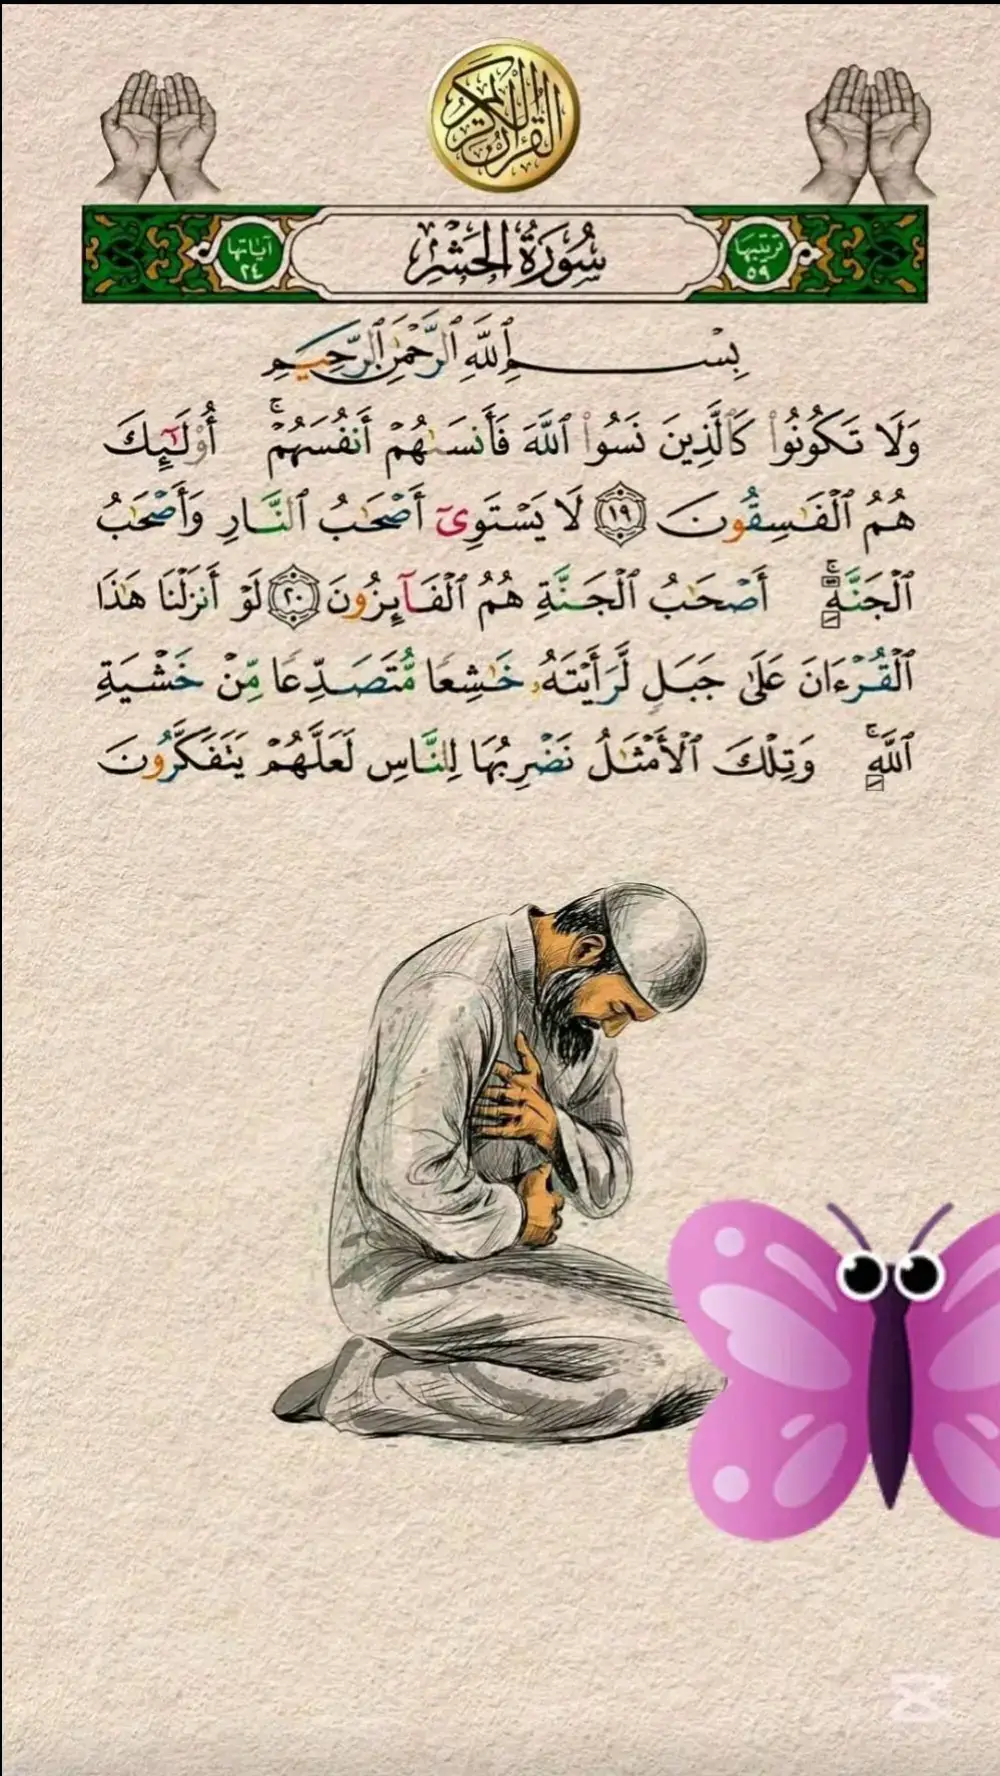 القرآن الكريم
ترتيبها ٥٩
سُورَةُ الحَشْرِ
آياتها ٢٤
بِسْمِ ٱللَّهِ ٱلرَّحْمَٰنِ ٱلرَّحِيمِ
وَلَا تَكُونُوا۟ كَٱلَّذِينَ نَسُوا۟ ٱللَّهَ فَأَنسَىٰهُمْ أَنفُسَهُمْ ۚ أُو۟لَـٰٓئِكَ
هُمُ ٱلْفَـٰسِقُونَ ١٩ لَا يَسْتَوِىٓ أَصْحَـٰبُ ٱلنَّارِ وَأَصْحَـٰبُ
ٱلْجَنَّةِ ۚ أَصْحَـٰبُ ٱلْجَنَّةِ هُمُ ٱلْفَآئِزُونَ ٢٠ لَوْ أَنزَلْنَا هَـٰذَا
ٱلْقُرْءَانَ عَلَىٰ جَبَلٍ لَّرَأَيْتَهُۥ خَـٰشِعًا مُّتَصَدِّعًا مِّنْ خَشْيَةِ
ٱللَّهِ ۚ وَتِلْكَ ٱلْأَمْثَـٰلُ نَضْرِبُهَا لِلنَّاسِ لَعَلَّهُمْ يَتَفَكَّرُونَ